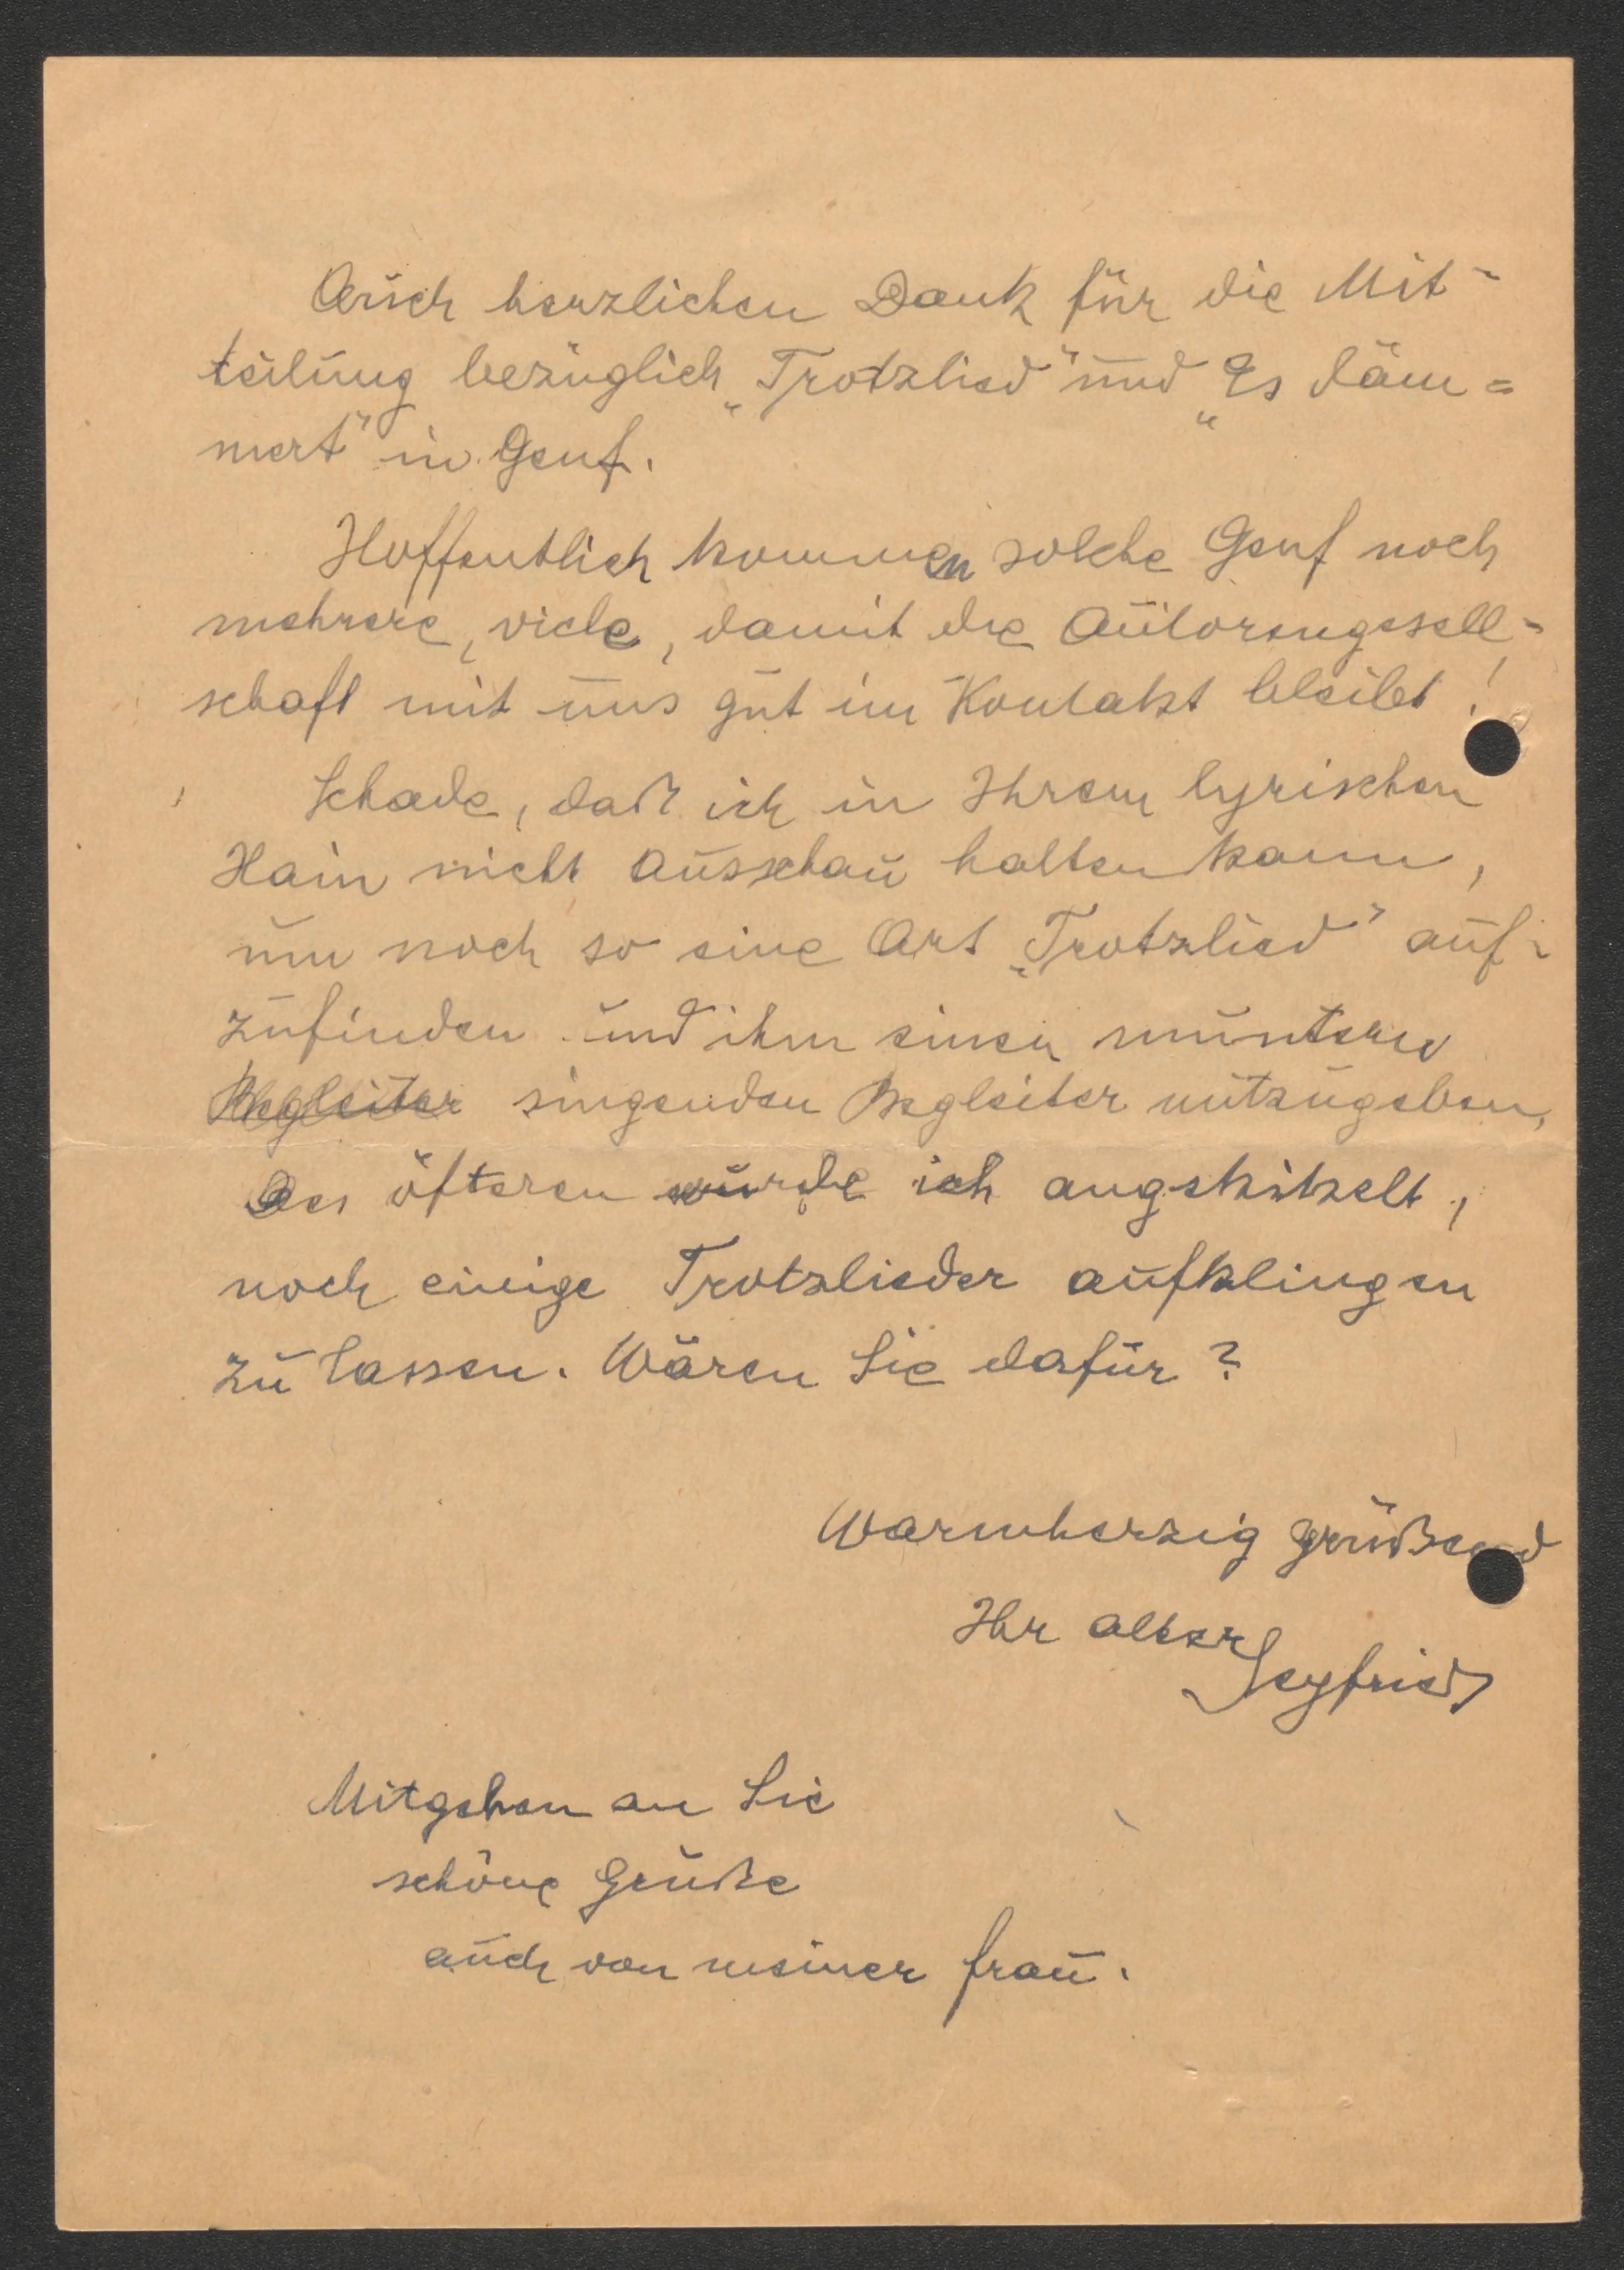 Auch herzlichen Dank für die Mit-
teilung bezüglich „Trotzlied" und „Es däm=
mert" in Genf.
Hoffentlich kommen solche Genf noch
mehrere, viele, damit die Autorengesell-
schaft mit uns gut im Kontakt bleibt!
Schade, daß ich in Ihrem lyrischen
Hain nicht Ausschau halten kann,
um noch so eine Art „Trotzlied" auf-
zufinden und ihm einen muntern
Begleiter singenden Begleiter mitzugeben,
Des öfteren wurde ich angekitzelt,
noch einige Trotzlieder aufklingen
zu lassen. Wären Sie dafür?
Warmherzig grüßend
Ihr alter
Seyfried
Mitgehen an Sie
schöne Grüße
auch von meiner Frau.